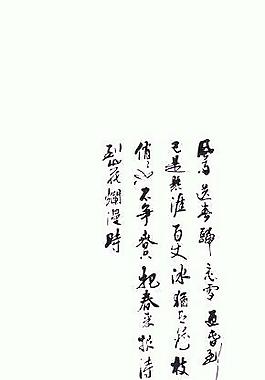 風雨送春歸飛雪迎春到
已是懸涯百丈冰猶有花枝
俏〻也不争春只把春来报待
到山花爛漫時